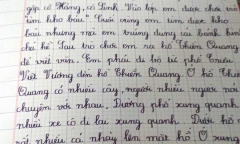 gặp cô Hằng, cô Linh. Vào lớp em được chơi trò
tìm kho báu. Trời cùng em tìm được kho
báu nhưng mà em trúng dụng cái bánh bím
chị kể. Sau trò chơi em ra hồ Thiền Quang
để viết văn. Em phải đi bộ từ phố Triệu
Việt Vương đến hồ Thiền Quang. Ở hồ Thiền
Quang có nhiều cây, người nhiều người nói
chuyện với nhau. Đường phố xung quanh
nhiều xe cô đi lại xung quanh. Dưới hồ
rất nhiều cá nhảy lên mặt hồ. Ở xung